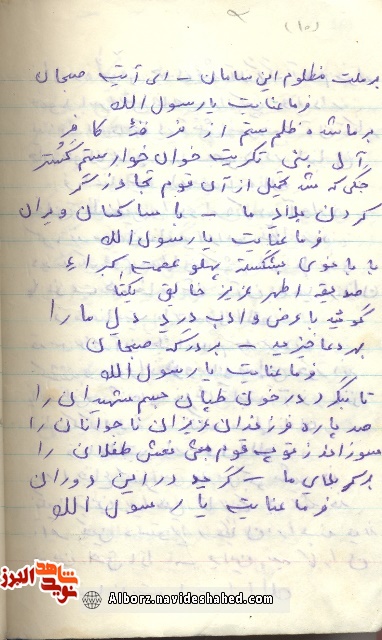 (۱۵)
بر ملت مظلوم این سامان - ای آیت سبحان
فرما عنایت یا رسول الله
بر ما شده ظلم ستم از فرقهٔ کافر
آن بنی تکریت خوان خوار ستم گستر
جنگی که شد تحمیل از آن قوم تجاوزگر
کردن بلاد ما - با ساکنان ویران
فرما عنایت یا رسول الله
با بانوی بشکسته پهلو عصمت کبراء
صدیقه اطهر عزیز خالق یکتا
گوئید با عرض و ادب درد دل ما را
بهر دعا خیزید - بر درگه سبحان
فرما عنایت یا رسول الله
تا بنگرد در خون طپان جسم شهیدان را
صد پاره فرزندان عزیزان نا جوانان را
سوزانند قوم بعثی نعش طفلان را
بر کربلای ما - گرید در این دوران
فرما عنایت یا رسول الله
شاهد البرز
نوید
Alborz.navideshahed.com